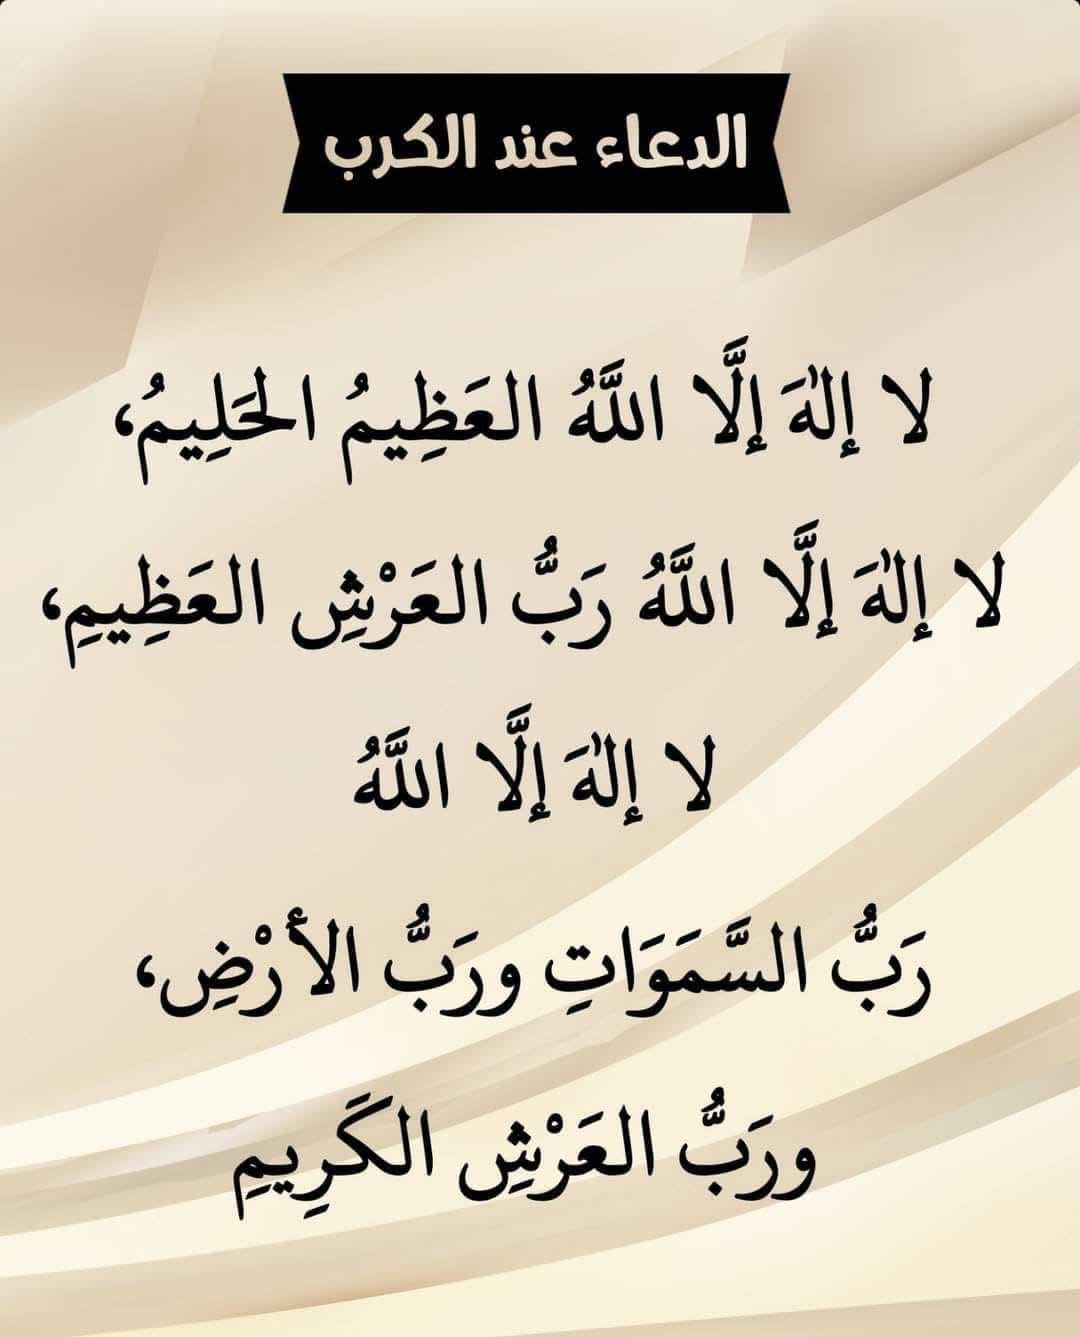 الدعاء عند الكرب
لا إلٰهَ إلَّا اللَّهُ العَظِيمُ الحَلِيمُ،
لا إلٰهَ إلَّا اللَّهُ رَبُّ العَرْشِ العَظِيمِ،
لا إلٰهَ إلَّا اللَّهُ
رَبُّ السَّمَوَاتِ ورَبُّ الأرْضِ،
ورَبُّ العَرْشِ الكَرِيمِ